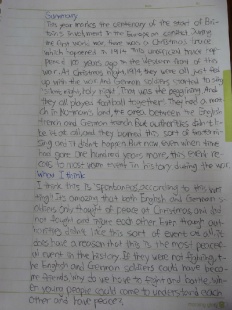 Summary
This year marks the centenary of the start of Bri-
tain's involvement in the European conflict. During
the first world war, there was a Christmas truce
which happened in 1914. This unofficial truce hap-
pened 100 years ago in the Western front of this
war. At Christmas night, 1914 they were all just fed
up with the war and German soldiers started to sing
silent night, holy night. That was the beginning. And
they all played football together. They had a mat-
ch in No-man's land, the areas between the English
trench and German trench. But authorities didn't li-
ke it at all and they banned this sort of fraterni-
sing and it didn't happen. But now even when time
had gone one hundred years more, this event re-
mains to most event in history during the war.
What I think
I think this is spontaneous according to this wri-
ting. It's amazing that both English and German s-
oldiers only thought of peace at Christmas and did
not fought and more each other ever though aut-
horities didn't like this sort of event at all. It
does have a reason that this is the most peace-
ful event in the history. If they were not fighting, t-
he English and German soldiers could have beco-
me friends. Why do we have to fight and battle wh-
en young people could come to understand each
other and have peace?